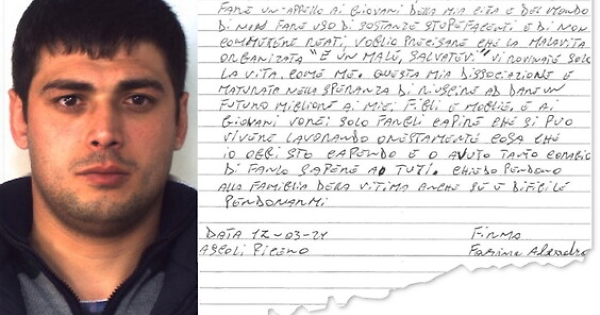 FARE UN APPELLO AI GIOVANI DELLA MIA CITA E DEL MONDO
DI NON FARE USO DI SOSTANZE STUPEFACENTI E DI NON
COMMETTERE REATI, VOGLIO PRECISARE CHE LA MALAVITA
ORGANIZATA "È UN MALE, SALVATEVI" VI ROVINATE SOLO
LA VITA, COME ME. QUESTA MIA DISSOCIAZIONE E
MATURATA NELLA SPERANZA DI RIUSCIRE AD DARE UN
FUTURO MIGLIORE A MIEI FIGLI E MOGLIE. E AI
GIOVANI VOREI SOLO FARGLI CAPIRE CHE SI PUO
VIVERE LAVORANDO ONESTAMENTE COSA CHE
IO OGGI STO CAPENDO E O AVUTO TANTO CORAGIO
DI FARLO SAPERE AD TUTI. CHIEDO PERDONO
ALLA FAMIGLIA DELLA VITTIMA ANCHE SE È DIFICILE
PERDONARMI
DATA 12-03-21 FIRMA
ASCOLI PICENO